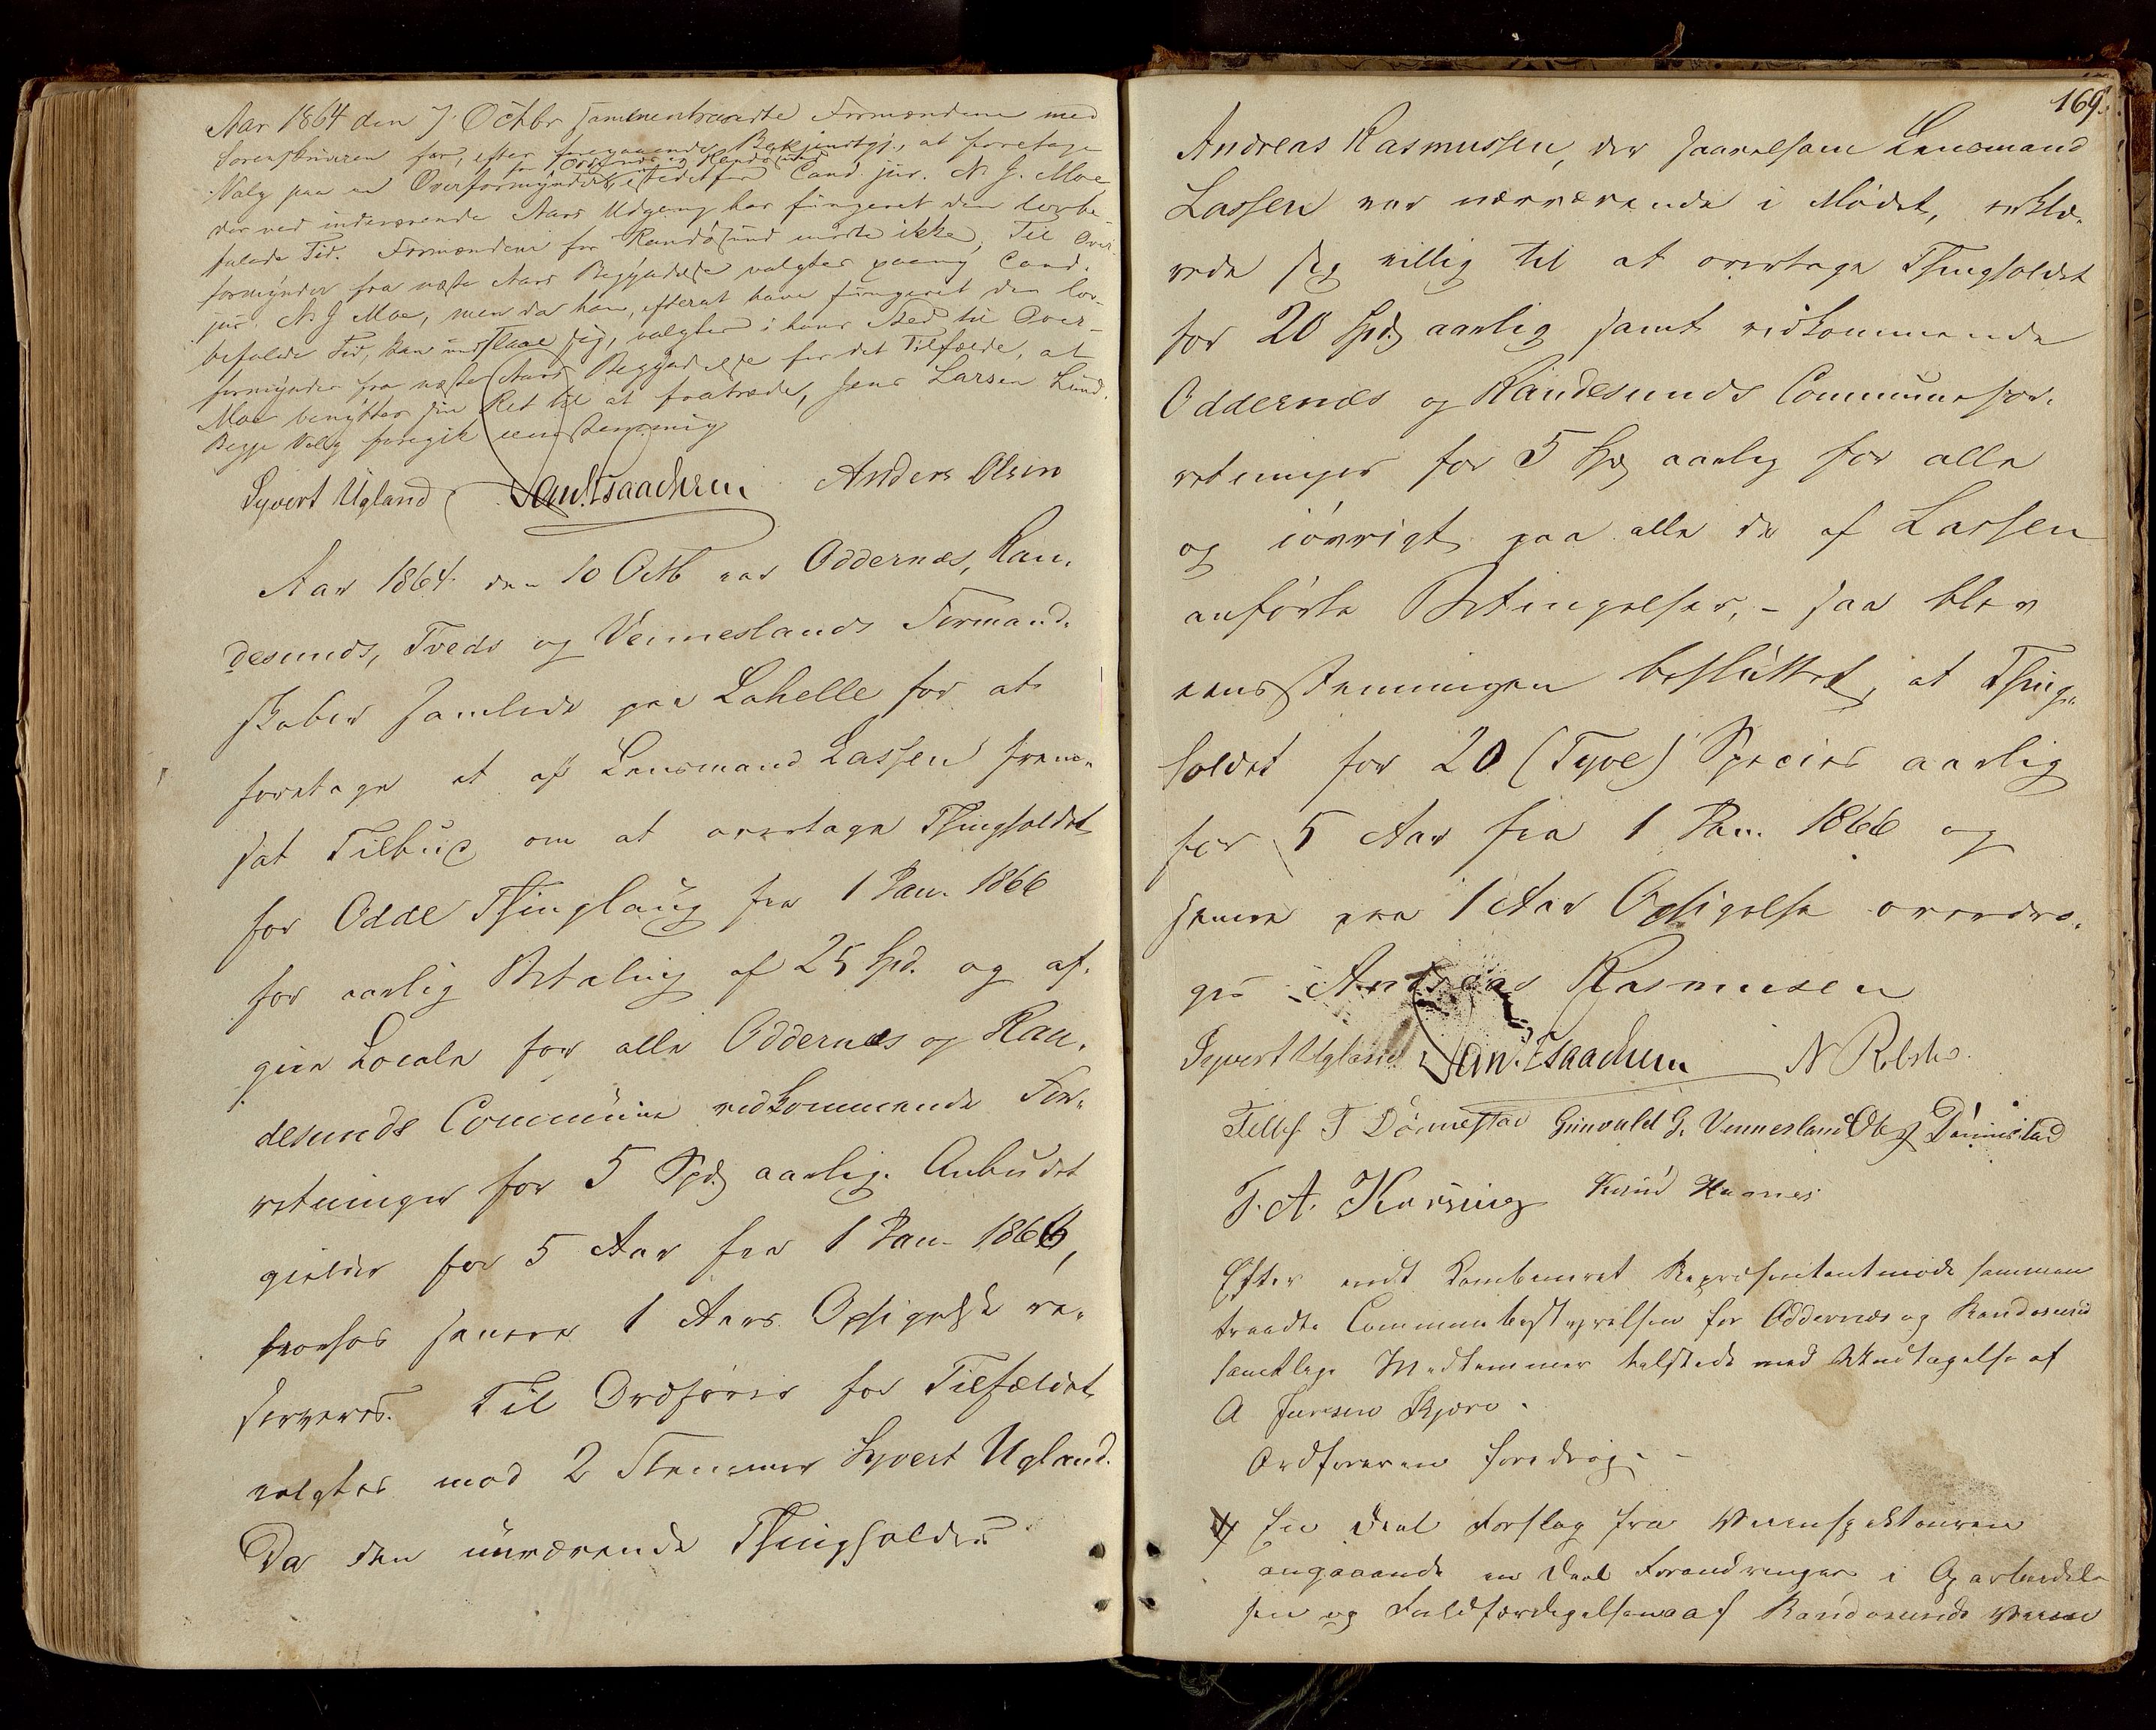 Aar 1864 den 7 Octbr sammentraadte Formændene med
Sorenskriveren for, efter foregaaende Bekjendtgj., at foretage
for Oddernæs og Randøsund
Valg paa en Overformynder istedetfor Cand. jur. N. J. Moe
der ved indeværende Aars Udgang har fungeret den lovbe-
falede Tid. Formændene for Randøsund mødte ikke, Til Over-
formynder fra næste Aars Begyndelse valgtes paany Cand.
jur. N. J Moe, men da han, efterat have fungeret den lov-
befalede Tid, kan undslaae sig, valgtes i hans Sted til Over-
formynder fra næste Aars Begyndelse for det Tilfælde, at
Moe benytter sin Ret til at fratræde, Jens Larsen Lund.
Begge Valg foregik eenstemmig
Syvert Ugland Dan. Isaachsen Anders Olsen
Aar 1864 den 10 Octb var Oddernæs, Ran-
desunds, Tveds og Venneslands Formand-
skaber samlede paa Lahelle for at
foretage et af Lensmand Lassen frem-
sat Tilbud om at overtage Thingholdet
for Odde Thinglaug fra 1 Jan. 1866
for aarlig Betaling af 25 Spd. og af-
give Locale for alle Oddernæs og Ran-
desunds Commune vedkommende For-
retninger for 5 Spd. aarlig. Anbudet
gjelder for 5 Aar fra 1 Jan. 1866,
hvorhos senere 1 Aars Opsigelse re-
serveres. Til Ordfører for Tilfældet
valgtes mod 2 Stemmer Syvert Ugland.
Da den nuværende Thingholder
169.
Andreas Rasmussen, der saavelsom Lensmand
Lassen var nærværende i Mødet, erklæ-
rede sig villig til at overtage Thingholdet
for 20 Spd. aarlig samt vedkommende
Oddernæs og Randesunds Communefor-
retninger for 5 Spd. aarlig for alle
og iøvrigt paa alle de af Lassen
anførte Betingelser, - saa blev
eensstemmingen besluttet, at Thing-
holdet for 20 (Tyve) Species aarlig
for 5 Aar fra 1 Jan. 1866 og
senere paa 1 Aar Opsigelse overdra-
ges Andreas Rasmusen
Syvert Ugland Dan. Isaachsen N
Tellef T Dønnestad Gunvald G. Vennesland Ole Dønnestad
T. A. Knud
Efter endt Kombineret Repræsentantmøde sammen
traadte Communebestyrelsen for Oddernæs og Randøsund
samtlige Medlemmer tilstede med Undtagelse af
A Jensen Kjære.
Ordføreren foredrog. -
1) En Deel Forslag fra Veiinspekteuren
angaaende en Deel Forandringer i Oparbeidel-
sen og Fuldfærdigelsen af Randøsunds Veiene